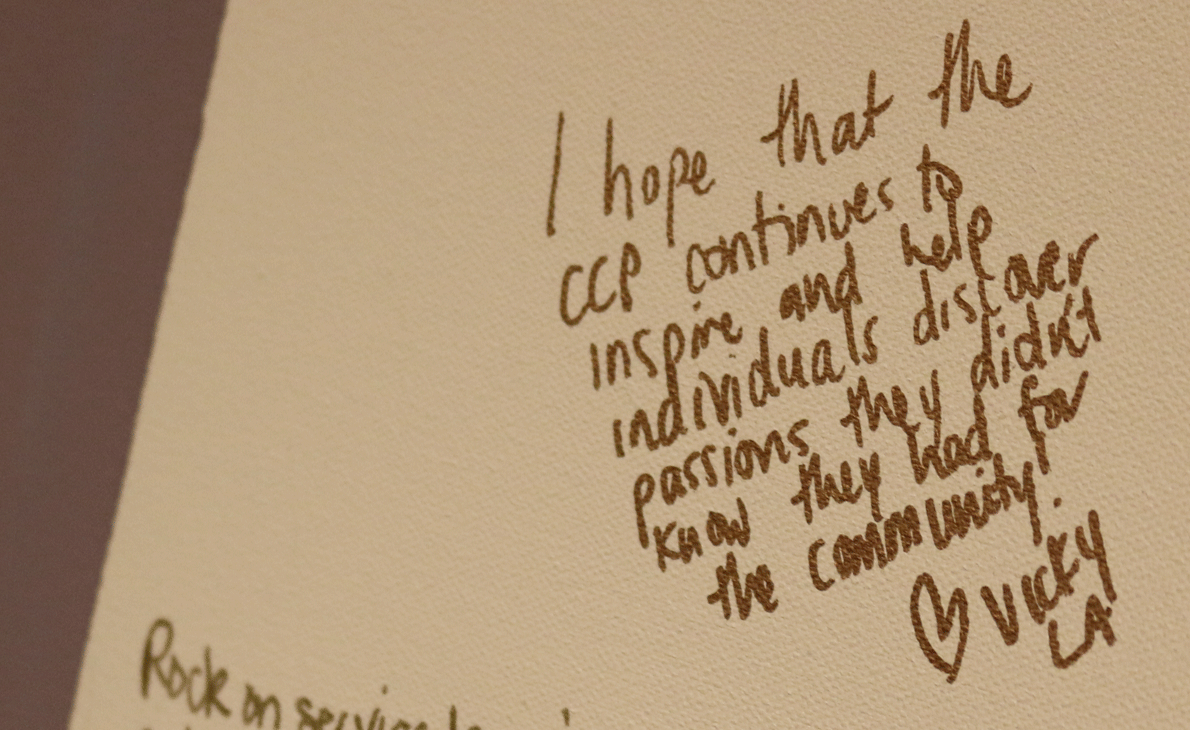 I hope that the
CCP continues to
inspire and help
individuals discover
passions they didn't
know they had for
the community.
♡ Vicky
LA
Rock on service